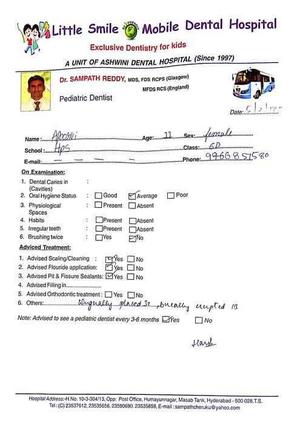 Little Smile Mobile Dental Hospital
Exclusive Dentistry for kids
A UNIT OF ASHWINI DENTAL HOSPITAL (Since 1997)
Dr. SAMPATH REDDY, MDS, FDS RCPS (Glasgow)
MFDS RCS (England)
Pediatric Dentist
Date:
Name: Age: 11 Sex: female
School: HPS Class: 6D
E-mail: Phone:
On Examination:
1. Dental Caries in (Cavities) :
2. Oral Hygiene Status : Good Average Poor
3. Physiological Spaces : Present Absent
4. Habits : Present Absent
5. Irregular teeth : Present Absent
6. Brushing twice : Yes No
Advised Treatment:
1. Advised Scaling/Cleaning : Yes No
2. Advised Flouride application: Yes No
3. Advised Pit & Fissure Sealants: Yes No
4. Advised Filling in
5. Advised Orthodontic treatment : Yes No
6. Others: lingually placed buccally erupted 13
Note: Advised to see a pediatric dentist every 3-6 months Yes No
Hospital Address:-H.No. 10-3-304/13, Opp: Post Office, Humayunnagar, Masab Tank, Hyderabad - 500 028.T.S.
Tel: (C) 23537612, 23535656, 23590690, 23535858, E-mail : sampathcheruku@yahoo.com